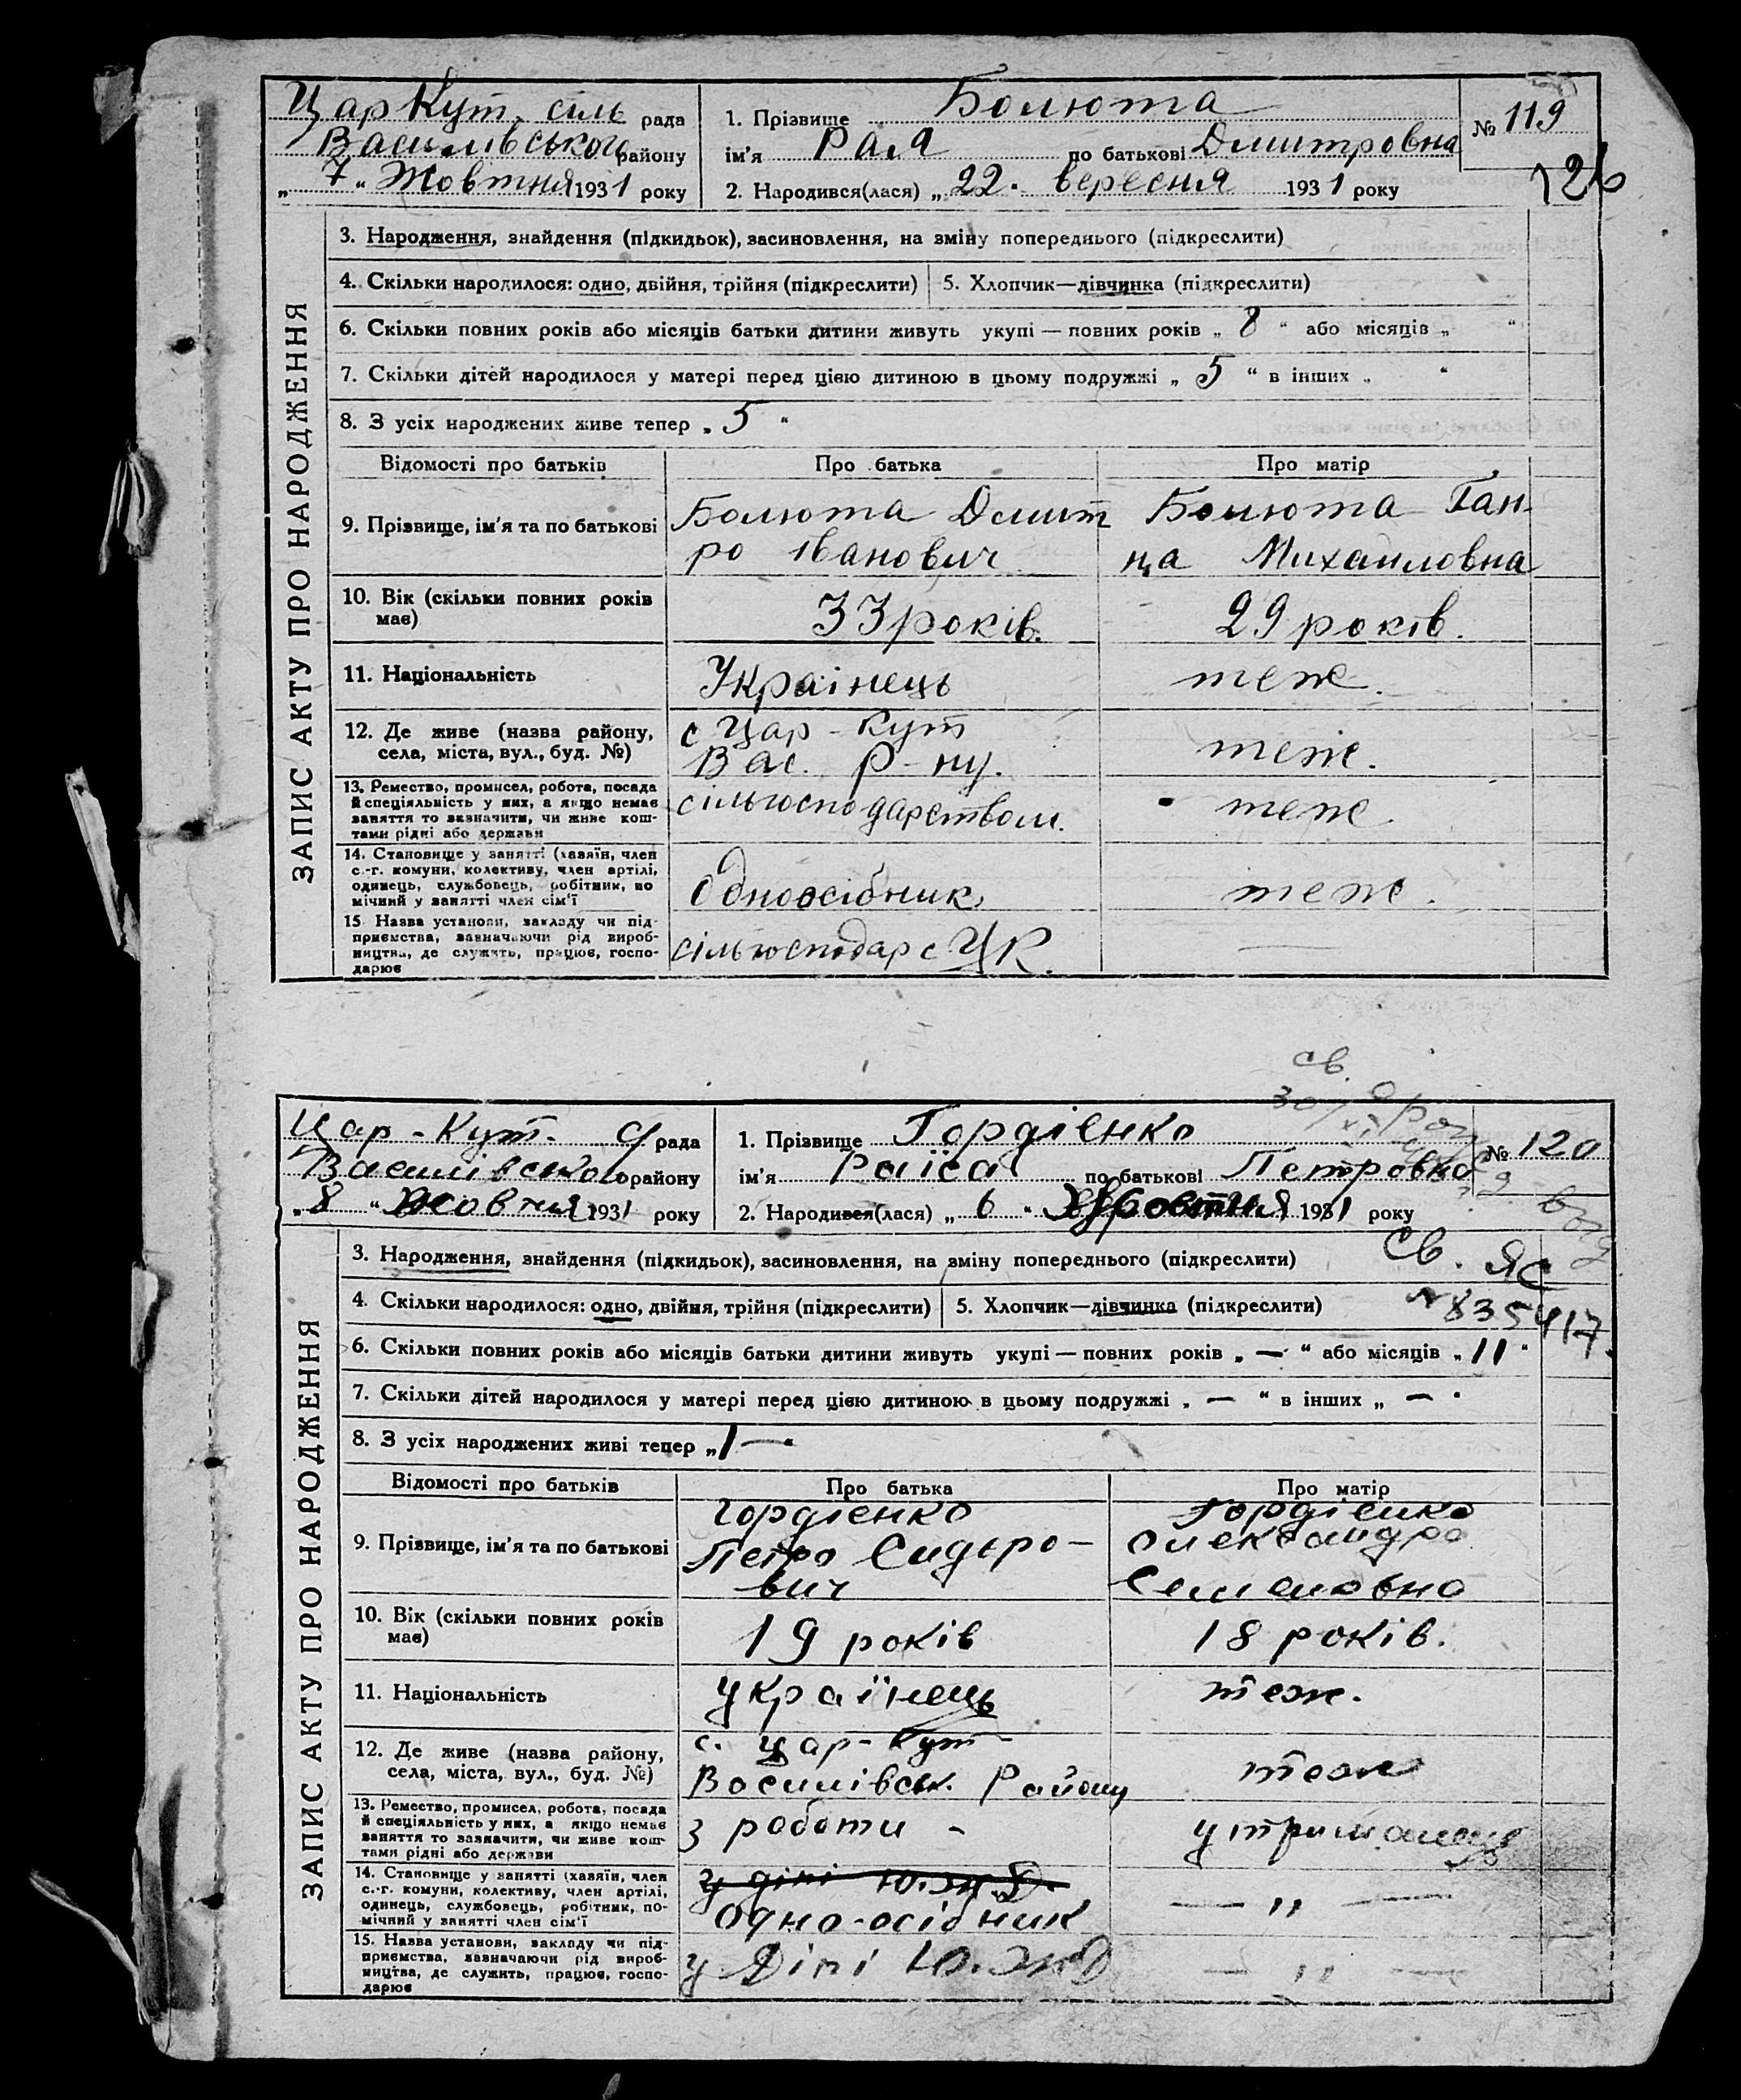 Цар Кут. сіль рада
Василівського району
„ 7 “ Жовтня 1931 року
1. Прізвище Болюта
ім'я Рая по батькові Дмитровна
2. Народився(лася) „ 22. вересня 1931 року
№ 119
126
ЗАПИС АКТУ ПРО НАРОДЖЕННЯ
3. Народження, знайдення (підкидьок), засиновлення, на зміну попереднього (підкреслити)
4. Скільки народилося: одно, двійня, трійня (підкреслити) 5. Хлопчик—дівчинка (підкреслити)
6. Скільки повних років або місяців батьки дитини живуть укупі — повних років „ 8 “ або місяців „ “
7. Скільки дітей народилося у матері перед цією дитиною в цьому подружжі „ 5 “ в інших „ “
8. З усіх народжених живе тепер „ 5 “
Відомості про батьків Про батька Про матір
9. Прізвище, ім'я та по батькові
Болюта Дмит
ро Іванович
Болюта Ган-
на Михайловна
10. Вік (скільки повних років
має)
33 років.
29 років.
11. Національність
Українець
теж.
12. Де живе (назва району,
села, міста, вул., буд. №)
с Цар-Кут
Вас. Р-ну.
теж.
13. Ремество, промисел, робота, посада
й спеціяльність у них, а якщо немає
заняття то зазначити, чи живе кош-
тами рідні або держави
сільгосподарством.
теж.
14. Становище у занятті (хазяїн, член
с.-г. комуни, колективу, член артілі,
одинець, службовець, робітник, по
мічний у занятті член сім'ї
Одноосібник
теж.
15. Назва установи, закладу чи під-
приємства, зазначаючи рід вироб-
ництва, де служить, працює, госпо-
дарює
сільгосподар с ЦК.
св.
Цар-Кут. с/рада
Василівського району
„ 8 “ Жовтня 1931 року
1. Прізвище Гордієнко
ім'я Раїса по батькові Петровна
2. Народився(лася) „ 6 “ Жовтня 1931 року
№ 120
ЗАПИС АКТУ ПРО НАРОДЖЕННЯ
3. Народження, знайдення (підкидьок), засиновлення, на зміну попереднього (підкреслити)
св. ЯС
№ 835417.
4. Скільки народилося: одно, двійня, трійня (підкреслити) 5. Хлопчик—дівчинка (підкреслити)
6. Скільки повних років або місяців батьки дитини живуть укупі — повних років „ — “ або місяців „ 11 “
7. Скільки дітей народилося у матері перед цією дитиною в цьому подружжі „ — “ в інших „ — “
8. З усіх народжених живі тепер „ 1 — “
Відомості про батьків Про батька Про матір
9. Прізвище, ім'я та по батькові
Гордієнко
Петро Сидоро-
вич
Гордієнко
Олександра
Семеновна
10. Вік (скільки повних років
має)
19 років
18 років.
11. Національність
українець
теж.
12. Де живе (назва району,
села, міста, вул., буд. №)
с. Цар-Кут
Василівськ. Району
теж
13. Ремество, промисел, робота, посада
й спеціяльність у них, а якщо немає
заняття то зазначити, чи живе кош-
тами рідні або держави
з роботи -
утриманець
14. Становище у занятті (хазяїн, член
с.-г. комуни, колективу, член артілі,
одинець, службовець, робітник, по-
мічний у занятті член сім'ї
у діпі Ю.ж.Д.
одно-осібник
— „ —
15. Назва установи, закладу чи під-
приємства, зазначаючи рід вироб-
ництва, де служить, працює, госпо-
дарює
у Діпі Ю.ж.Д
— „ —